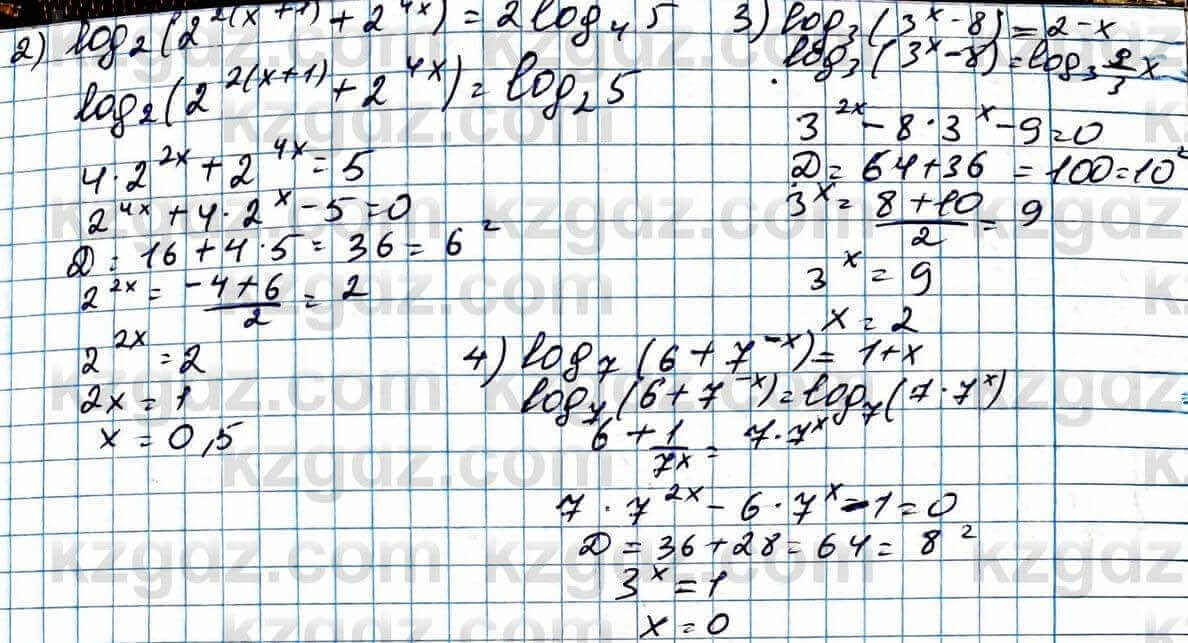 2) log₂(2^(2(x+1)) + 2^(4x)) = 2log₄5
log₂(2^(2(x+1)) + 2^(4x)) = log₂5
4·2^(2x) + 2^(4x) = 5
2^(4x) + 4·2^x - 5 = 0
D = 16 + 4·5 = 36 = 6²
2^(2x) = (-4+6)/2 = 2
2^(2x) = 2
2x = 1
x = 0,5
3) log₃(3^x - 8) = 2 - x
log₃(3^x - 8) = log₃ 9/3 x
3^(2x) - 8·3^x - 9 = 0
D = 64 + 36 = 100 = 10²
3^x = (8+10)/2 = 9
3^x = 9
x = 2
4) log₇(6 + 7^(-x)) = 1 + x
log₇(6 + 7^(-x)) = log₇(7·7^x)
6 + 1/7^x = 7·7^x
7·7^(2x) - 6·7^x - 1 = 0
D = 36 + 28 = 64 = 8²
3^x = 1
x = 0
kzgdz.com